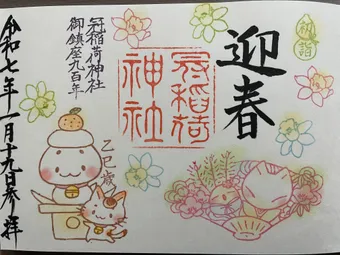 初詣
迎春
冠稲荷神社
冠稲荷神社
御鎮座九百年
乙巳歳
令和七年一月十九日参拝